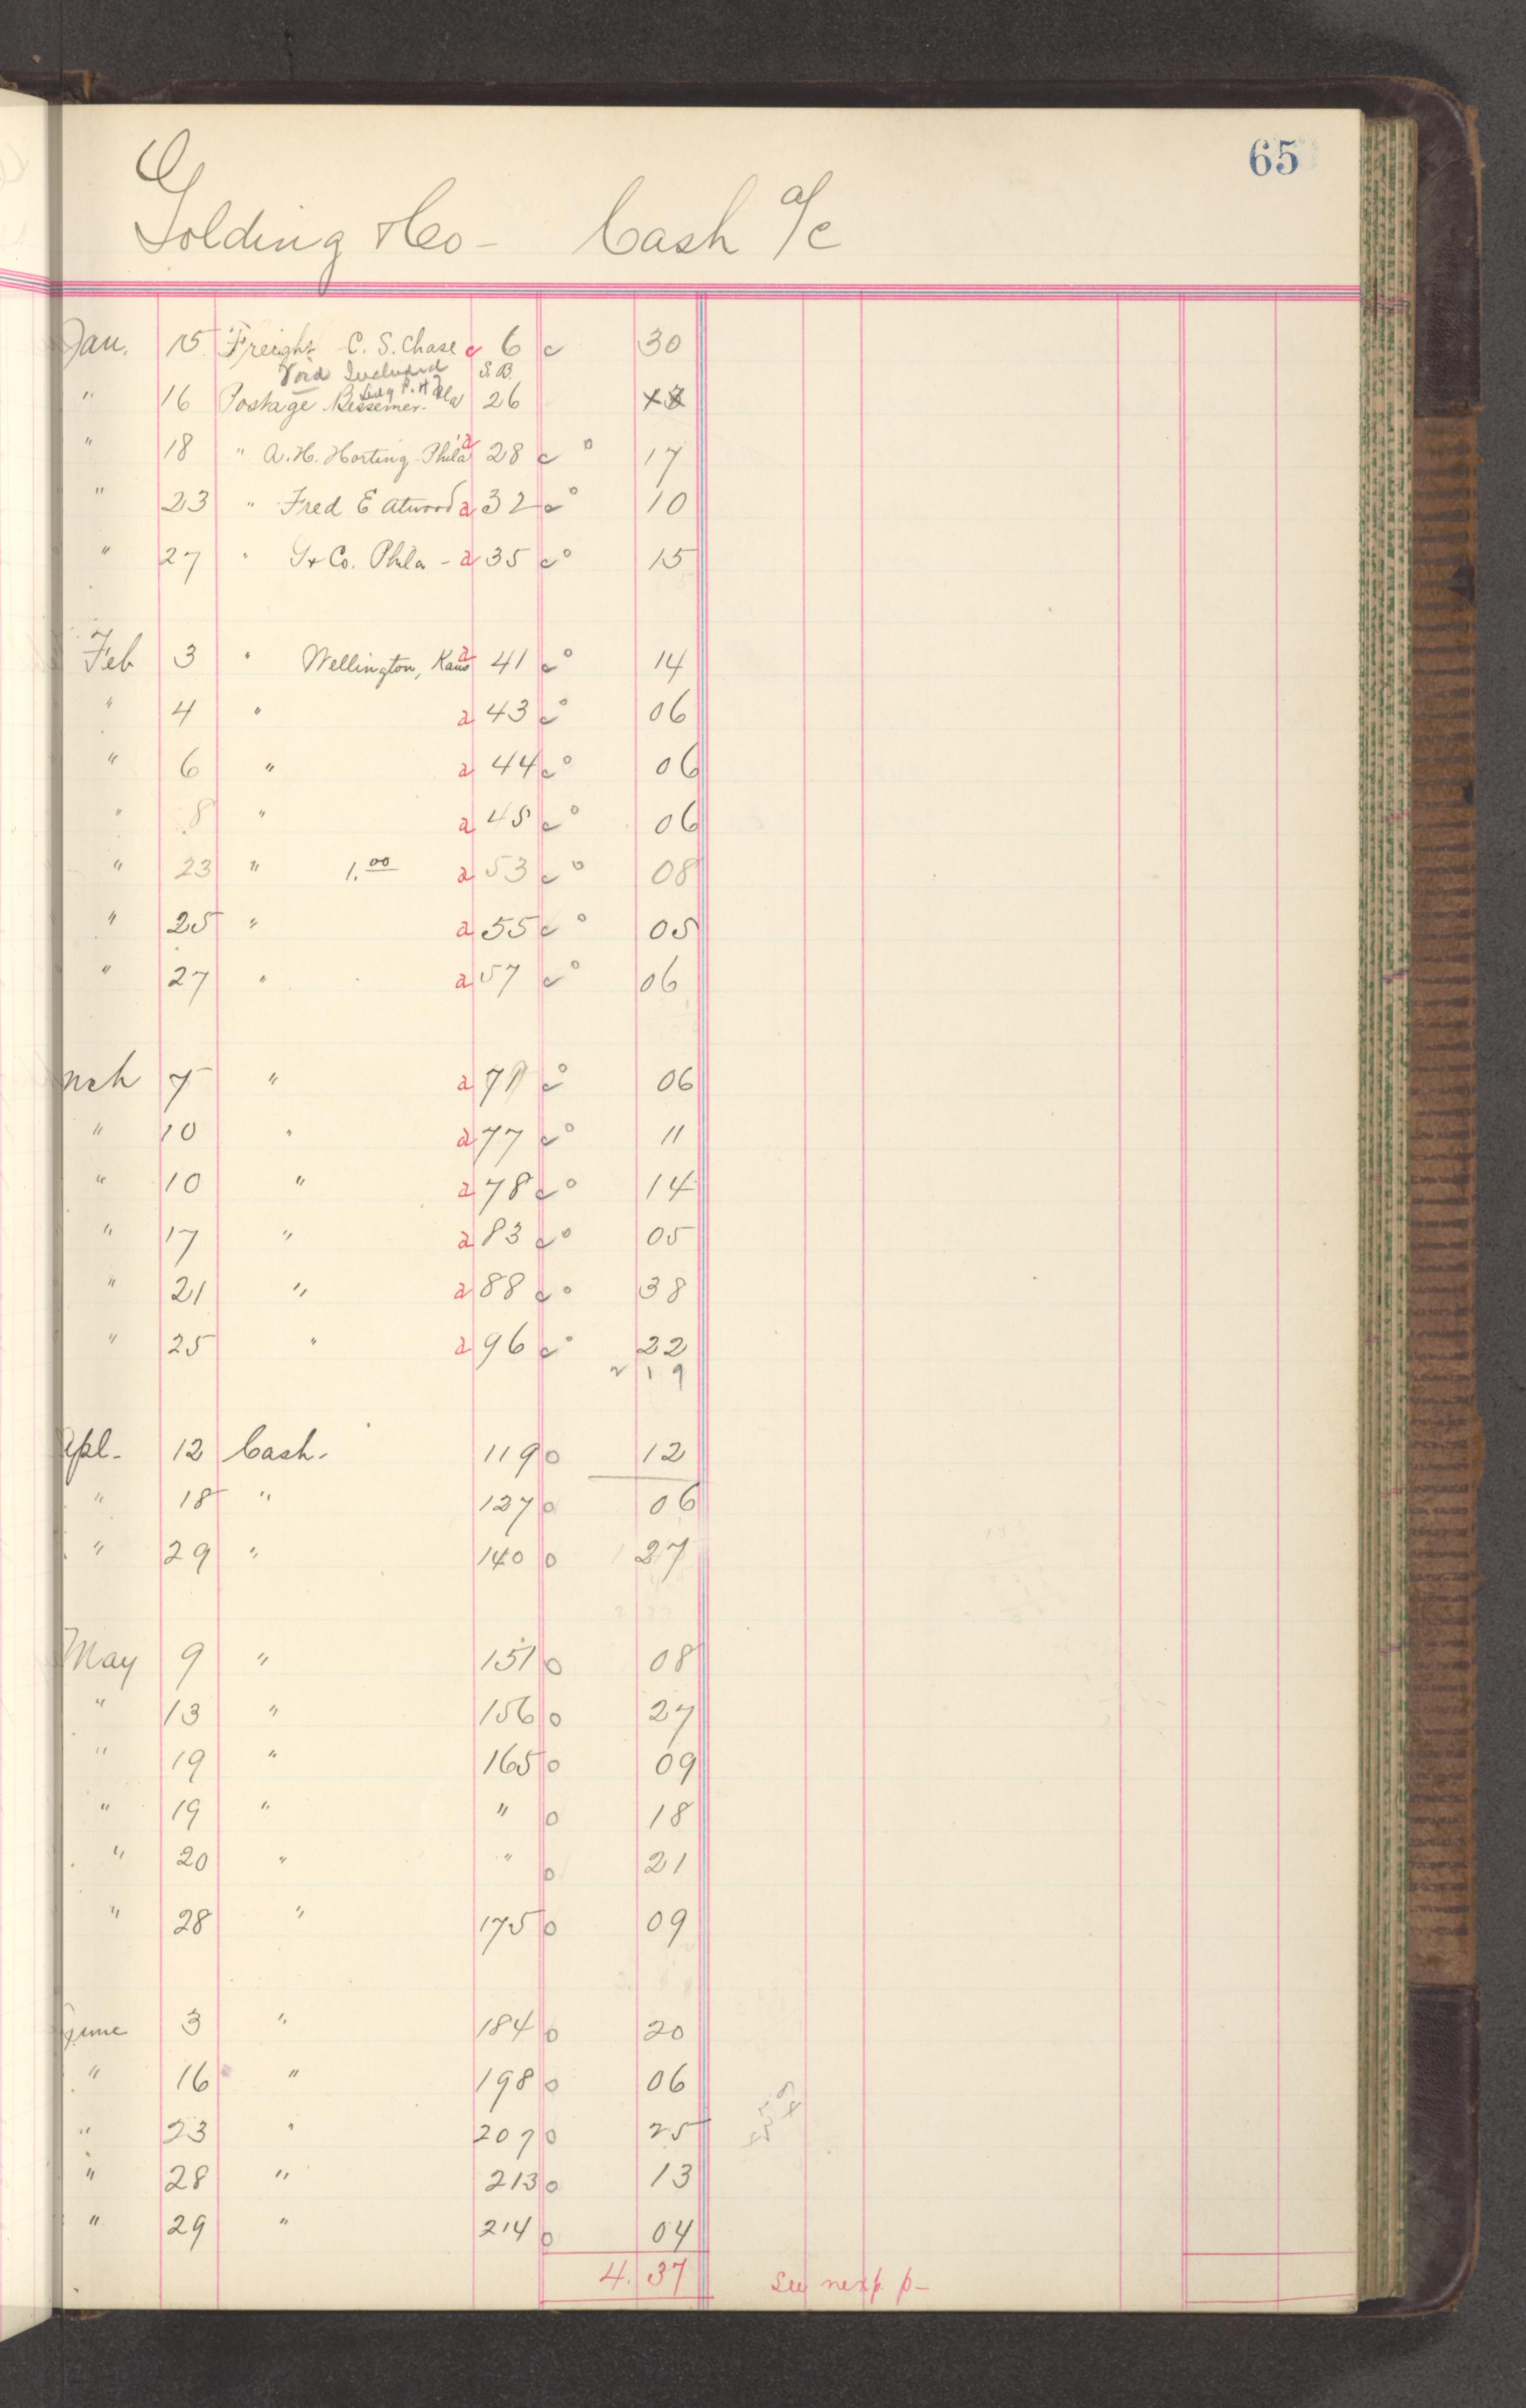 65
Golding & Co - Cash a/c
Jan. 15 Freight C. S. Chase c 6 c 30
Void S.B.
" 16 Postage Bessemer Ala 26
" 18 " A. H. Horting Phila a 28 c o 17
" 23 " Fred E Atwood a 32 c o 10
" 27 " G & Co. Phila - a 35 c o 15
Feb 3 " Wellington, Kans a 41 c o 14
" 4 " a 43 c o 06
" 6 " a 44 c o 06
" 8 " a 45 c o 06
" 23 " 1.00 a 53 c o 08
" 25 " a 55 c o 05
" 27 " a 57 c o 06
Mch 7 " a 71 c o 06
" 10 " a 77 c o 11
" 10 " a 78 c o 14
" 17 " a 83 c o 05
" 21 " a 88 c o 38
" 25 " a 96 c o 22
2 19
Apl - 12 Cash - 119 o 12
" 18 " 127 o 06
" 29 " 140 o 27
May 9 " 151 o 08
" 13 " 156 o 27
" 19 " 165 o 09
" 19 " " o 18
" 20 " " o 21
" 28 " 175 o 09
June 3 " 184 o 20
" 16 " 198 o 06
" 23 " 207 o 25
" 28 " 213 o 13
" 29 " 214 o 04
4. 37 See next p -